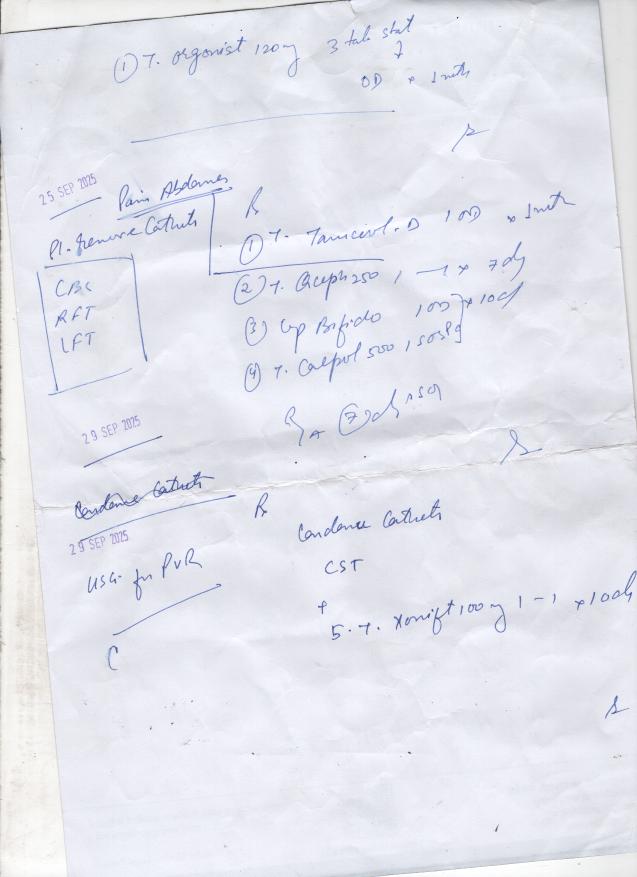 ① T. orgonist 120mg 3 tab stat
↓
OD × 1mth
25 SEP 2025
Pain Abdomen
Pl. Remove Catheter
CBC
RFT
LFT
Rx
① T. -D 1 OD × 1mth
② T. 250 1 — 1 × 7 dy
③ Cap Bifido 1 OD × 10d
④ T. Calpol 500 1 SOS
⑦ dy
29 SEP 2025
Catheter
Rx
29 SEP 2025
Catheter
USG for PVR
CST
+
5. T. Xonift 100mg 1 – 1 × 10d
C